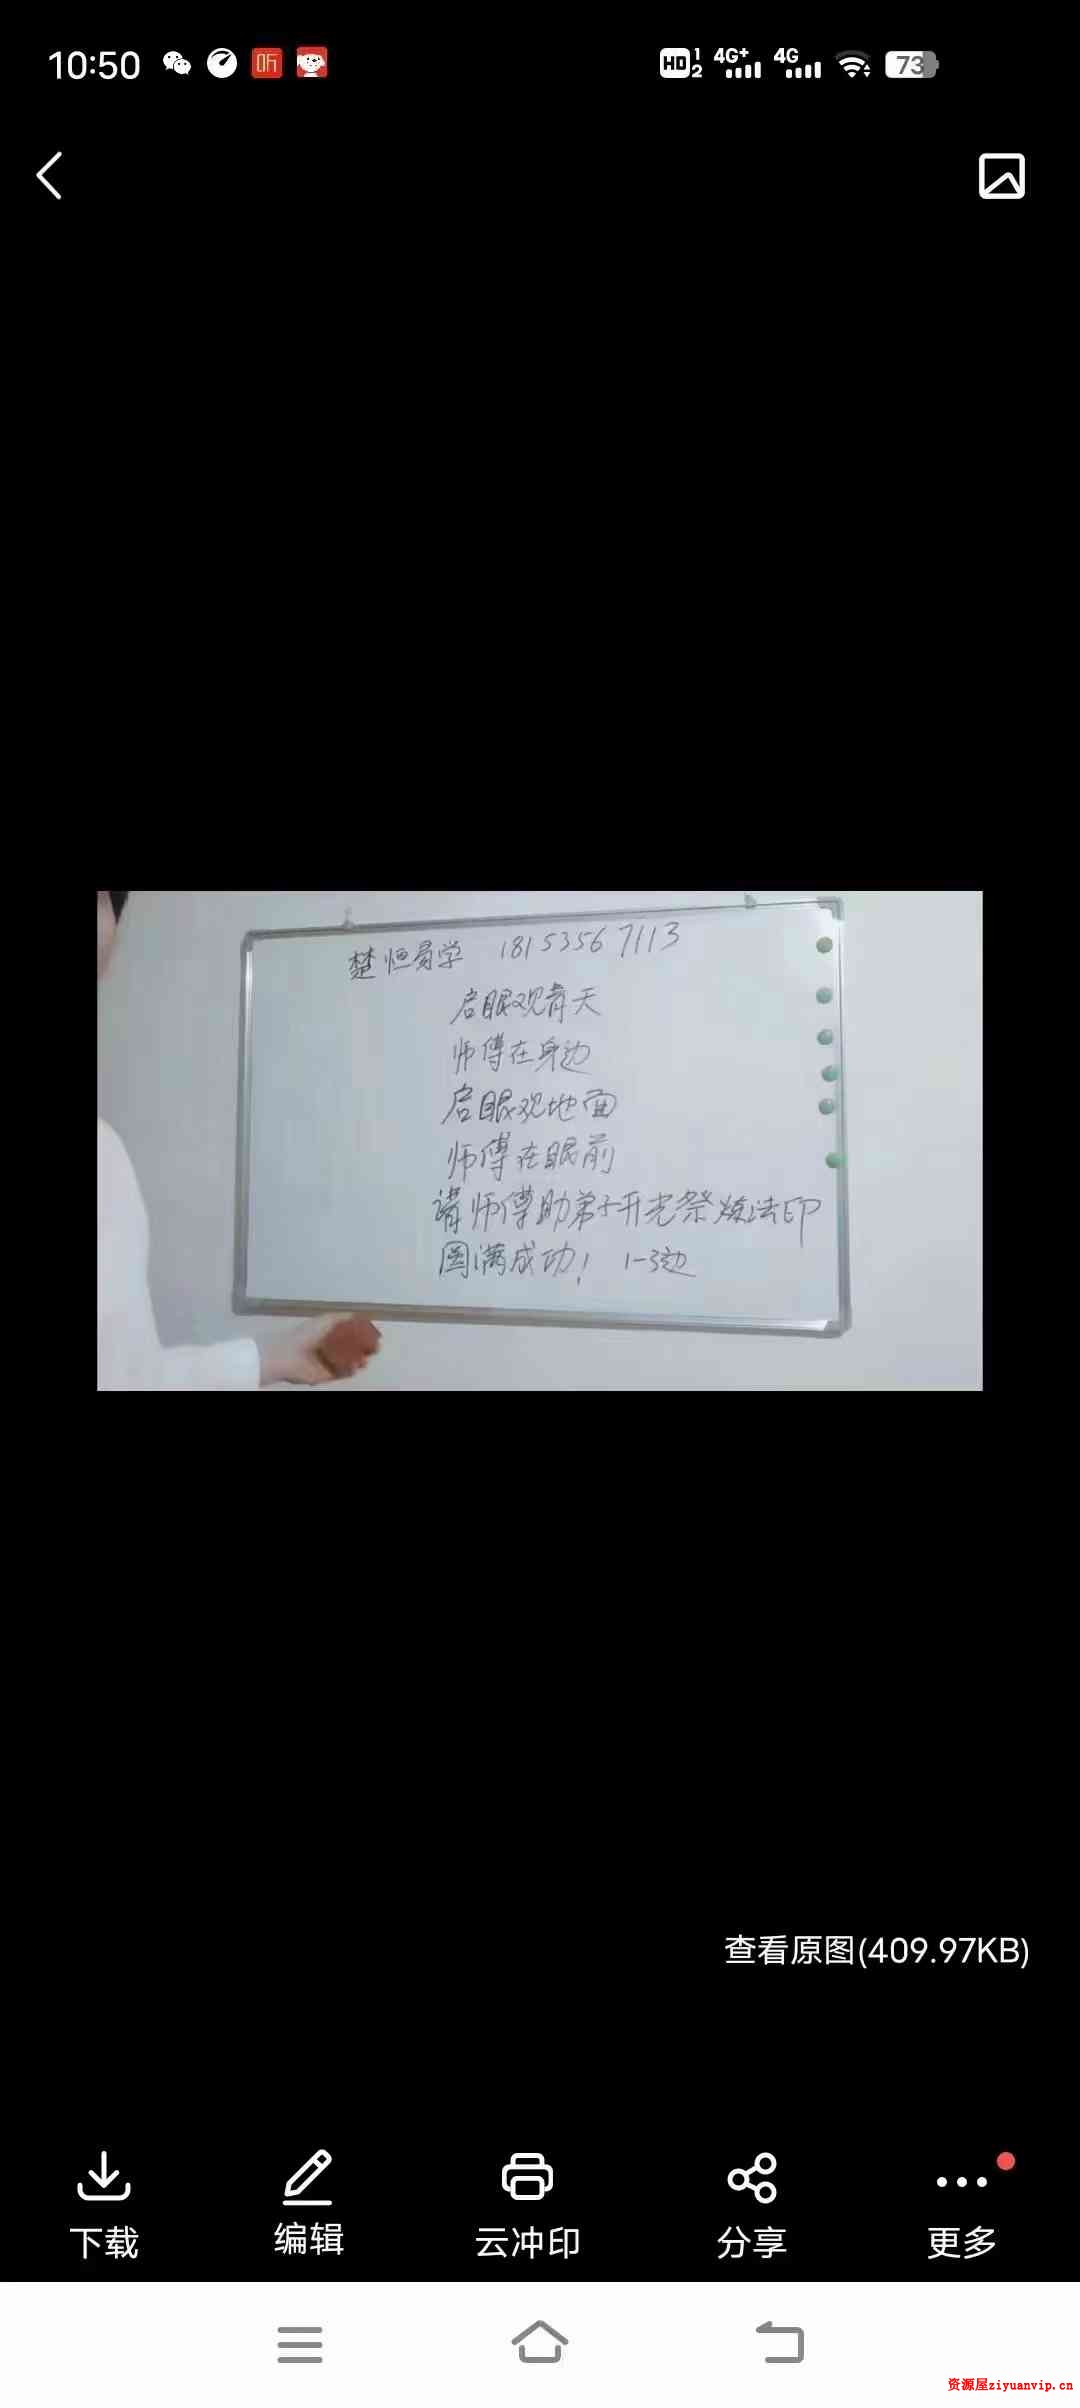 10:50 听 HD 1 2 4G+ 4G 73
楚恒易学 18153567113
启眼观青天
师傅在身边
启眼观地面
师傅在眼前
请师傅助弟子开光祭炼法印
圆满成功！ 1-3边
查看原图(409.97KB)
下载 编辑 云冲印 分享 更多
资源屋ziyuanvip.cn